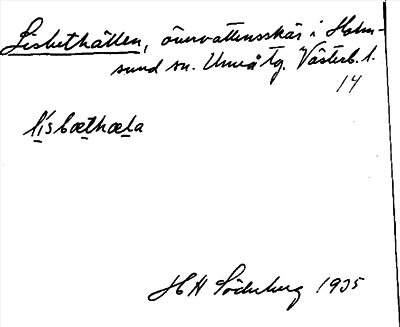 Lisbethällen, övervattensskär i Holm-
sund sn. Umeå tg. Västerb. l.
14
lisbæthæla
HH Söderberg 1935